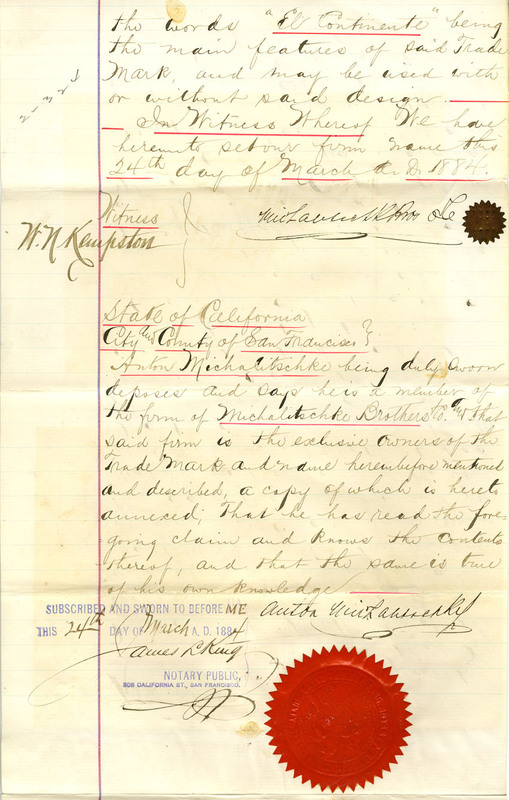 the words "El Continente" being
the main features of said Trade
Mark, and may be used with
or without said design.
In Witness Whereof We have
hereunto set our firm name this
24th day of March A.D. 1884.
Witness
W. N. Kempston
State of California
City and County of San Francisco }
Anton Michalitschke being duly sworn
deposes and says he is a member of
the form of Michalitschke Brothers & Co. and that
said firm is the exclusive owners of the
Trade Mark and name hereinbefore mentioned
and described, a copy of which is hereto
annexed; That he has read the fore-
going claim and knows the contents
thereof, and that the same is true
of his own knowledge
Anton Michalitschke
SUBSCRIBED AND SWORN TO BEFORE ME
THIS 24th DAY OF March A. D. 1884
James L. King
NOTARY PUBLIC,
508 CALIFORNIA ST., SAN FRANCISCO.